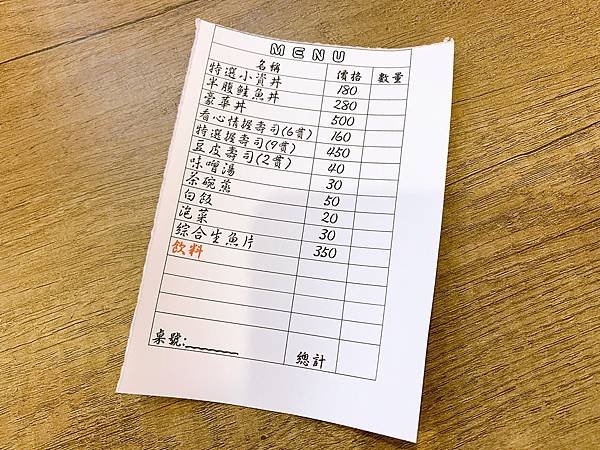 MENU
名稱 價格 數量
特選小資丼 180
半腹鮭魚丼 280
豪華丼 500
看心情握壽司(6貫) 160
特選握壽司(9貫) 450
豆皮壽司(2貫) 40
味噌湯 30
茶碗蒸 50
白飯 20
泡菜 30
綜合生魚片 350
飲料
桌號:______ 總計